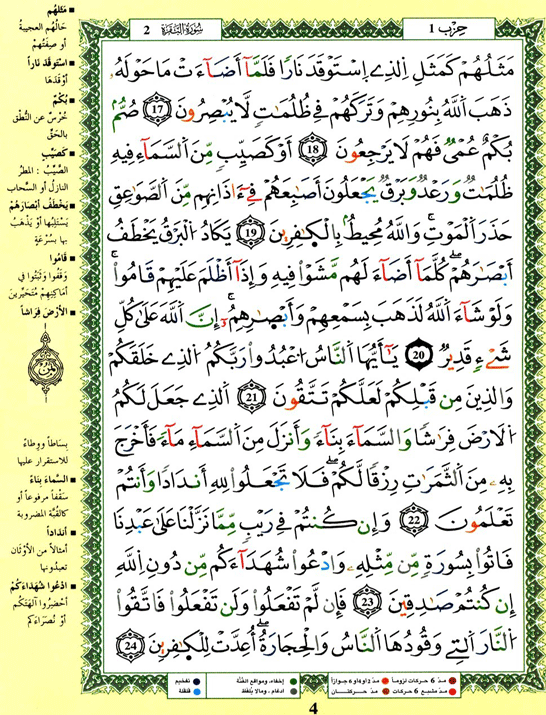 حِزْب 1
سُورَةُ البَقَرَة 2
مَثَلُهُمْ كَمَثَلِ اِلذِے اِسْتَوْقَدَ نَاراٗ فَلَمَّآ أَضَآءَتْ مَا حَوْلَهُۥ
ذَهَبَ اَللَّهُ بِنُورِهِمْ وَتَرَكَهُمْ فِے ظُلُمَٰتٖ لَّا يُبْصِرُونَ 17 صُمُّۢ
بُكْمٌ عُمْيٞ فَهُمْ لَا يَرْجِعُونَ 18 أَوْ كَصَيِّبٖ مِّنَ اَلسَّمَآءِ فِيهِ
ظُلُمَٰتٞ وَرَعْدٞ وَبَرْقٞ يَجْعَلُونَ أَصَٰبِعَهُمْ فِےٓ ءَاذَانِهِم مِّنَ اَلصَّوَٰعِقِ
حَذَرَ اَلْمَوْتِۖ وَاللَّهُ مُحِيطُۢ بِالْكٰ۪فِرِينَ 19 يَكَادُ اُلْبَرْقُ يَخْطَفُ
أَبْصَٰرَهُمْۖ كُلَّمَآ أَضَآءَ لَهُم مَّشَوْاْ فِيهِ وَإِذَآ أَظْلَمَ عَلَيْهِمْ قَامُواْۖ
وَلَوْ شَآءَ اَللَّهُ لَذَهَبَ بِسَمْعِهِمْ وَأَبْصٰ۪رِهِمُۥٓۖ إِنَّ اَللَّهَ عَلَىٰ كُلِّ
شَےْءٖ قَدِيرٞ 20 يَٰٓأَيُّهَا اَلنَّاسُ اُعْبُدُواْ رَبَّكُمُ اُلذِے خَلَقَكُمْ
وَالذِينَ مِن قَبْلِكُمْ لَعَلَّكُمْ تَتَّقُونَ 21 اَلذِے جَعَلَ لَكُمُ
اُلَارْضَ فِرَٰشاٗ وَالسَّمَآءَ بِنَآءٗ وَأَنزَلَ مِنَ اَلسَّمَآءِ مَآءٗ فَأَخْرَجَ
بِهِۦ مِنَ اَلثَّمَرَٰتِ رِزْقاٗ لَّكُمْۖ فَلَا تَجْعَلُواْ لِلهِ أَندَاداٗ وَأَنتُمْ
تَعْلَمُونَ 22 وَإِن كُنتُمْ فِے رَيْبٖ مِّمَّا نَزَّلْنَا عَلَىٰ عَبْدِنَا
فَاتُواْ بِسُورَةٖ مِّن مِّثْلِهِۦ وَادْعُواْ شُهَدَآءَكُم مِّن دُونِ اِللَّهِ
إِن كُنتُمْ صَٰدِقِينَ 23 فَإِن لَّمْ تَفْعَلُواْ وَلَن تَفْعَلُواْ فَاتَّقُواْ
اُلنَّارَ اَلتِے وَقُودُهَا اَلنَّاسُ وَالْحِجَارَةُۖ أُعِدَّتْ لِلْكٰ۪فِرِينَ 24
مَثَلُهُم
حَالُهُم العجيبةُ
أو صِفَتُهُمْ
اسْتَوْقَدَ نَاراً
أوْقَدَها
بُكْمٌ
خُرْسٌ عن النُّطْقِ
بالحَقِّ
كَصَيِّبٍ
الصَّيِّبُ : المطرُ
النازلُ أو السَّحاب
يَخْطَفُ أبْصَارَهُمْ
يَسْتَلِبُها أو يَذْهَبُ
بها بِسُرْعَةٍ
قَامُوا
وَقَفُوا وَثَبَتُوا في
أماكِنِهِمْ مُتَحَيِّرين
الأرْضَ فِرَاشاً
ثمن
بِسَاطاً ووِطاءً
للاستقرار عليها
السَّمَاءَ بِنَاءً
سَقْفاً مرفوعاً أو
كالقُبَّة المضروبة
أنداداً
أمثالاً من الأوْثان
تعبدُونها
ادْعُوا شُهَدَاءَكُمْ
أحْضِرُوا آلِهَتَكُم
أوْ نُصَرَاءَكم
مدّ 6 حركات لزوماً
مدّ 2 أو 4 أو 6 جوازاً
إخفاء، ومواقع الغُنَّة
تفخيم
مدّ مشبع 6 حركات
مدّ حركتان
ادغام ، ومالا يُلفظ
قلقلة
4